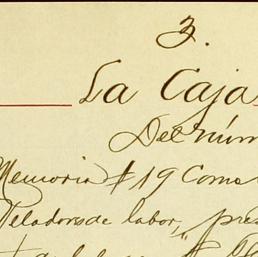 3.
La Caja
Del núm
Memoria # 19 Como
Veladors de labor, pres